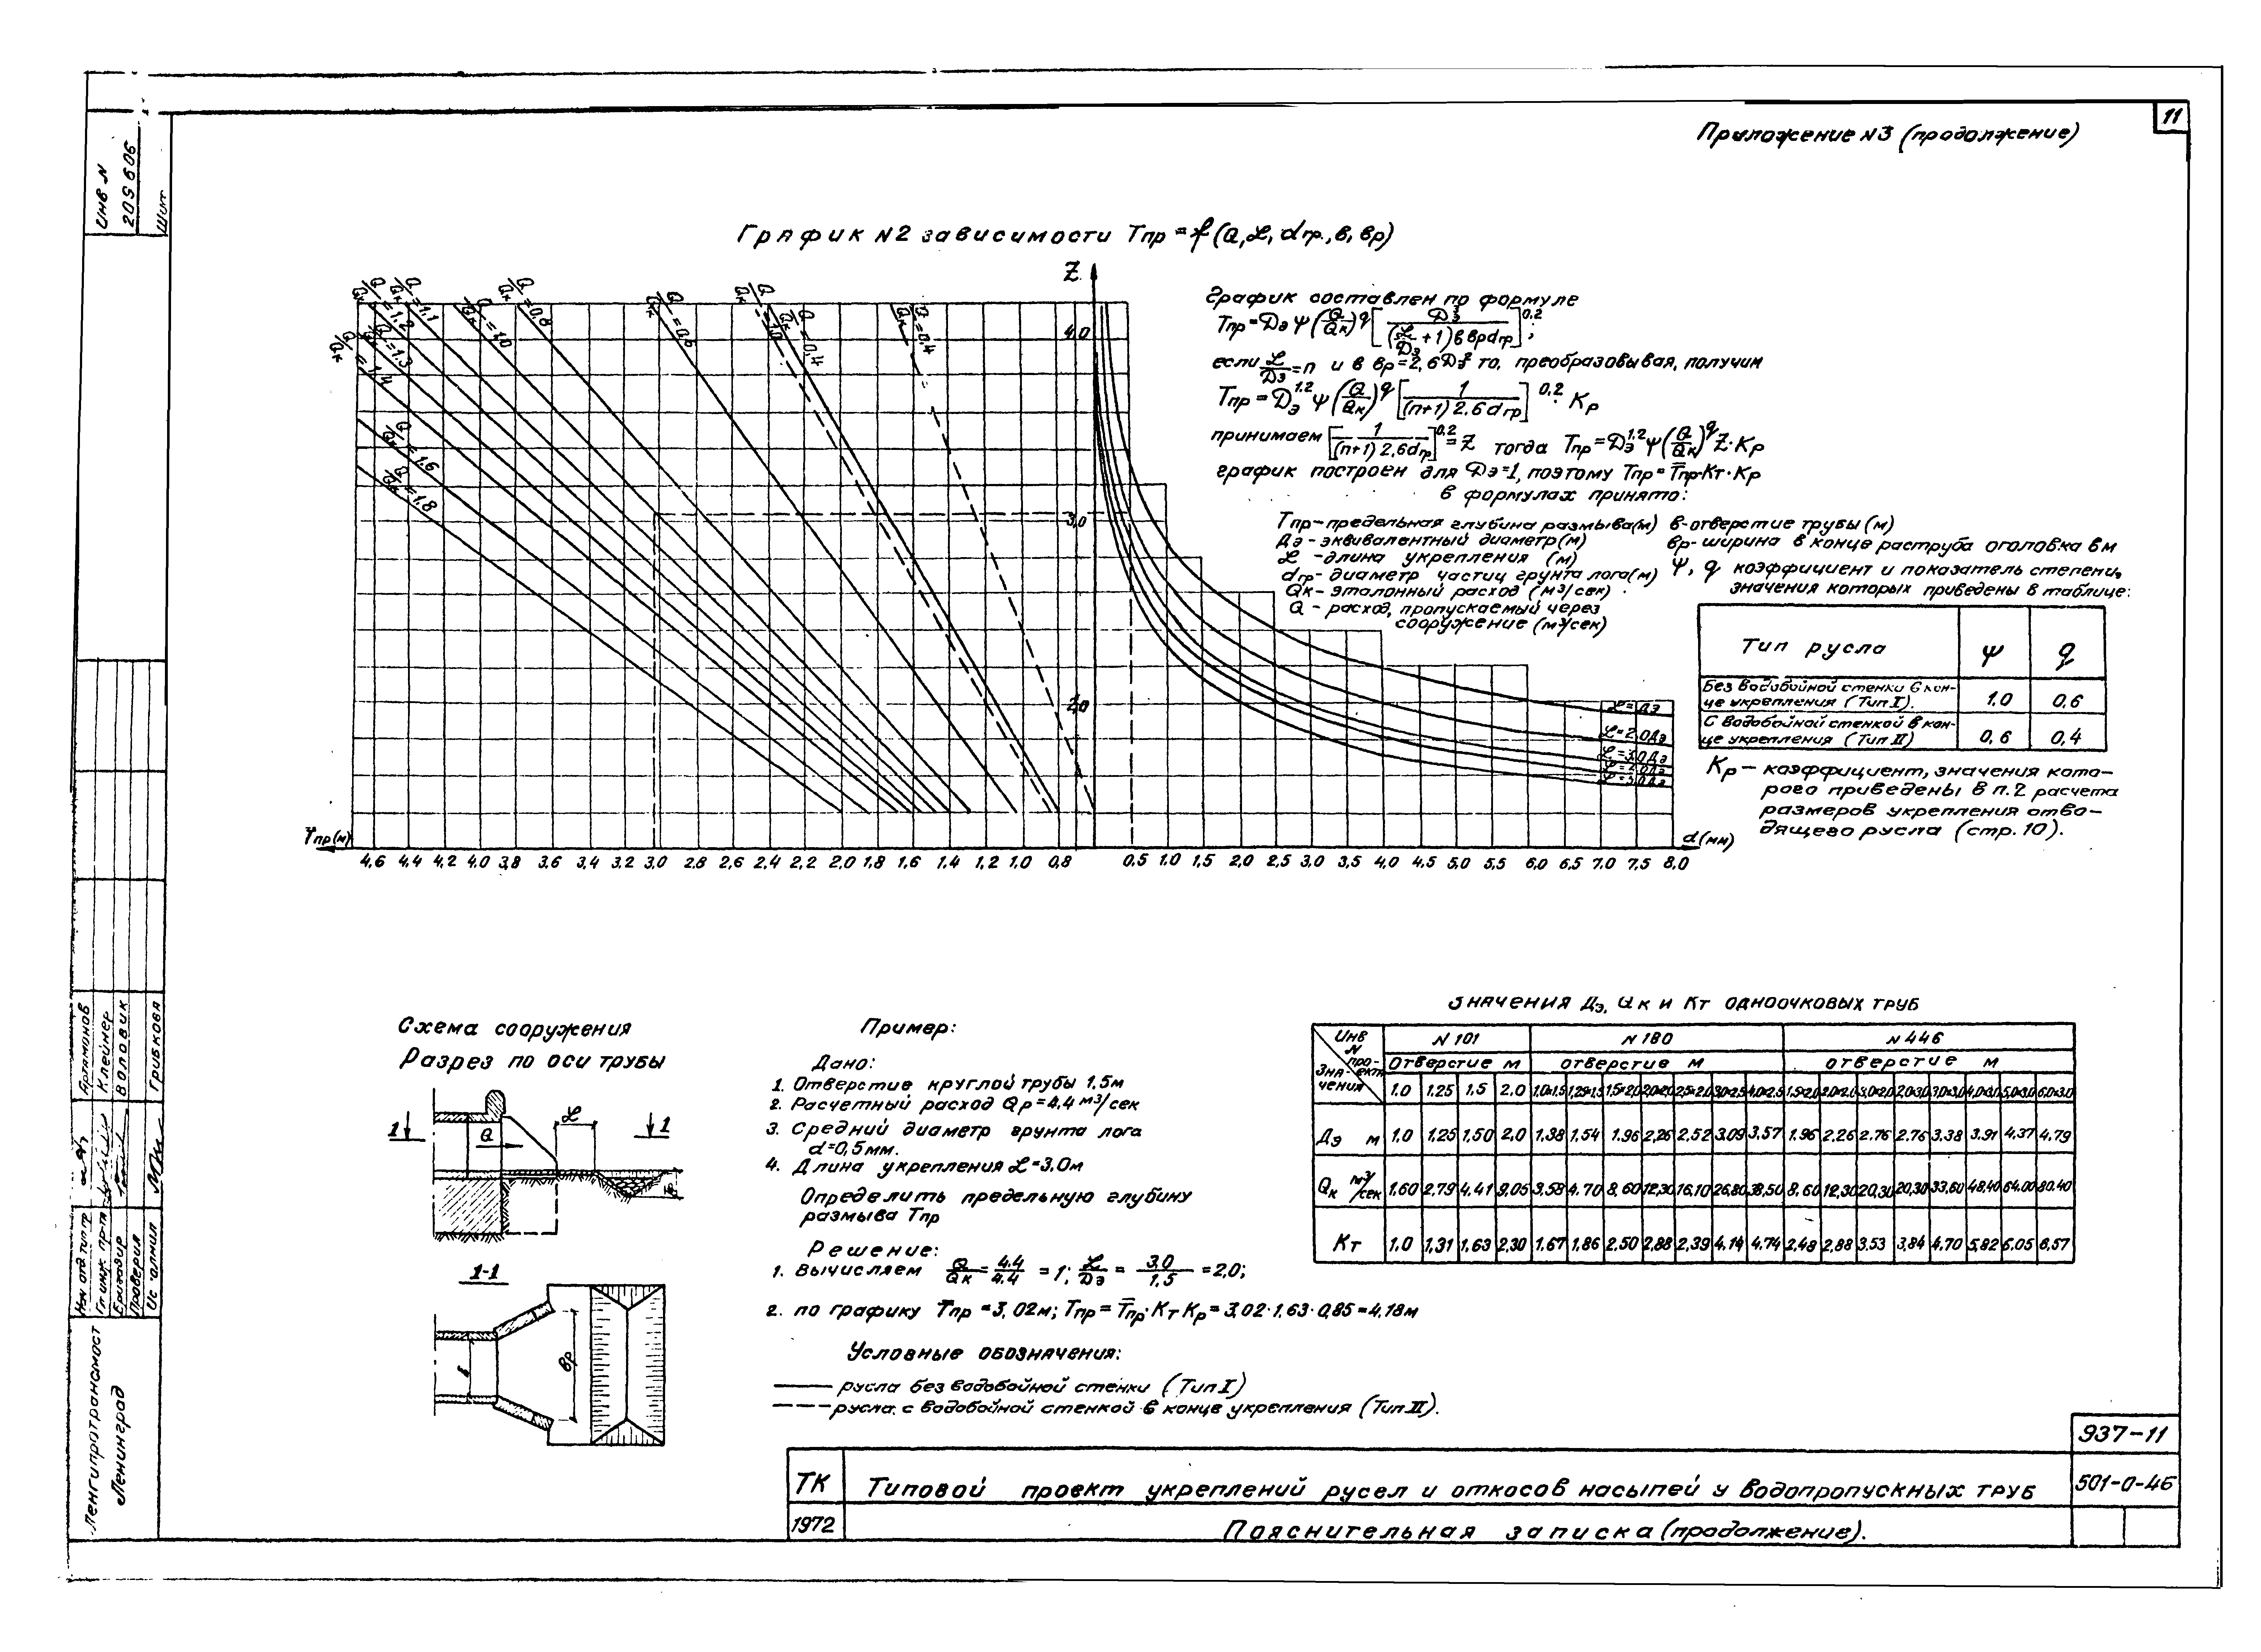 11
Приложение N3 (продолжение)
Инв N
209606
График N2 зависимости Tпр = f (Q, ℒ, dгр., в, вр)
Z
Q/Qк = 1.2
Q/Qк = 1.1
Q/Qк = 1.0
Q/Qк = 0.8
Q/Qк = 0.6
Q/Qк = 0.4
Q/Qк = 0.4
Q/Qк = 1.3
Q/Qк = 1.4
Q/Qк = 1.6
Q/Qк = 1.8
4,0
3,0
2,0
График составлен по формуле
Tпр = Dэ ψ (Q/Qк)^q [Dэ^3 / ((ℒ/Dэ + 1) в вр dгр)]^0,2 ;
если ℒ/Dэ = n и в вр = 2,6Dэ^2 то, преобразовывая, получим
Tпр = Dэ^1.2 ψ (Q/Qк)^q [1 / ((n+1) 2,6 dгр)]^0,2 · Kр
принимаем [1 / ((n+1) 2,6 dгр)]^0,2 = Z тогда Tпр = Dэ^1,2 ψ (Q/Qк)^q Z · Kр
график построен для Dэ = 1, поэтому Tпр = T̅пр·Kт·Kр
в формулах принято:
Tпр – предельная глубина размыва (м)
Дэ – эквивалентный диаметр (м)
ℒ – длина укрепления (м)
dгр – диаметр частиц грунта лога (м)
Qк – эталонный расход (м³/сек)
Q – расход, пропускаемый через
сооружение (м³/сек)
в – отверстие трубы (м)
вр – ширина в конце раструба оголовка в м
ψ, q коэффициент и показатель степени,
значения которых приведены в таблице:
Тип русла ψ q
Без водобойной стенки в кон-
це укрепления (Тип I). 1.0 0,6
С водобойной стенкой в кон-
це укрепления (Тип II) 0,6 0,4
Kр – коэффициент, значения кото-
рого приведены в п.2 расчета
размеров укрепления отво-
дящего русла (стр. 10).
ℒ = Дэ
ℒ = 2,0Дэ
ℒ = 3,0Дэ
ℒ = 5,0Дэ
T̅пр (м)
4,6 4,4 4,2 4,0 3,8 3,6 3,4 3,2 3,0 2,8 2,6 2,4 2,2 2,0 1,8 1,6 1,4 1,2 1,0 0,8
0.5 1.0 1,5 2,0 2,5 3,0 3,5 4,0 4,5 5,0 5,5 6,0 6,5 7.0 7,5 8,0
d (мм)
Схема сооружения
Разрез по оси трубы
1 Q ℒ 1
1-1
в вр
Пример:
Дано:
1. Отверстие круглой трубы 1,5м
2. Расчетный расход Qр = 4,4 м³/сек
3. Средний диаметр грунта лога
d = 0,5 мм.
4. Длина укрепления ℒ = 3,0м
Определить предельную глубину
размыва Tпр
Решение:
1. Вычисляем Q/Qк = 4.4/4.4 = 1; ℒ/Dэ = 3.0/1,5 = 2,0;
2. по графику T̅пр = 3,02м; Tпр = T̅пр·Kт Kр = 3,02·1,63·0,85 = 4,18м
Условные обозначения:
русла без водобойной стенки (Тип I)
русла с водобойной стенкой в конце укрепления (Тип II).
Значения Дэ, Qк и Kт одноочковых труб
Инв N про-екта N 101 N 180 N 446
Зна-чения Отверстие м отверстие м отверстие м
1.0 1,25 1,5 2,0 1,0×1,5 1,25×1,5 1,5×2,0 2,0×2,0 2,5×2,0 3,0×2,5 4,0×2,5 1,5×2,0 2,0×2,0 3,0×2,0 2,0×3,0 3,0×3,0 4,0×3,0 5,0×3,0 6,0×3,0
Дэ м 1.0 1,25 1,50 2,0 1,38 1,54 1.96 2,26 2,52 3,09 3,57 1,96 2,26 2.76 2,76 3.38 3.91 4,37 4,79
Qк м³/сек 1,60 2,79 4,41 9,05 3,58 4.70 8,60 12,30 16,10 26,80 38,50 8,60 12,30 20,30 20,30 33,60 48,40 64.00 80.40
Kт 1.0 1,31 1,63 2,30 1,67 1,86 2,50 2,88 2,39 4,14 4,74 2,48 2,88 3,53 3,84 4,70 5,82 6.05 6,57
Нач отд тип пр Артамонов
Гл инж. пр-та Клейнер
Бригадир Воловик
Проверил
Исполнил Грибкова
Ленгипротрансмост
Ленинград
937-11
ТК Типовой проект укреплений русел и откосов насыпей у водопропускных труб 501-0-46
1972 Пояснительная записка (продолжение).